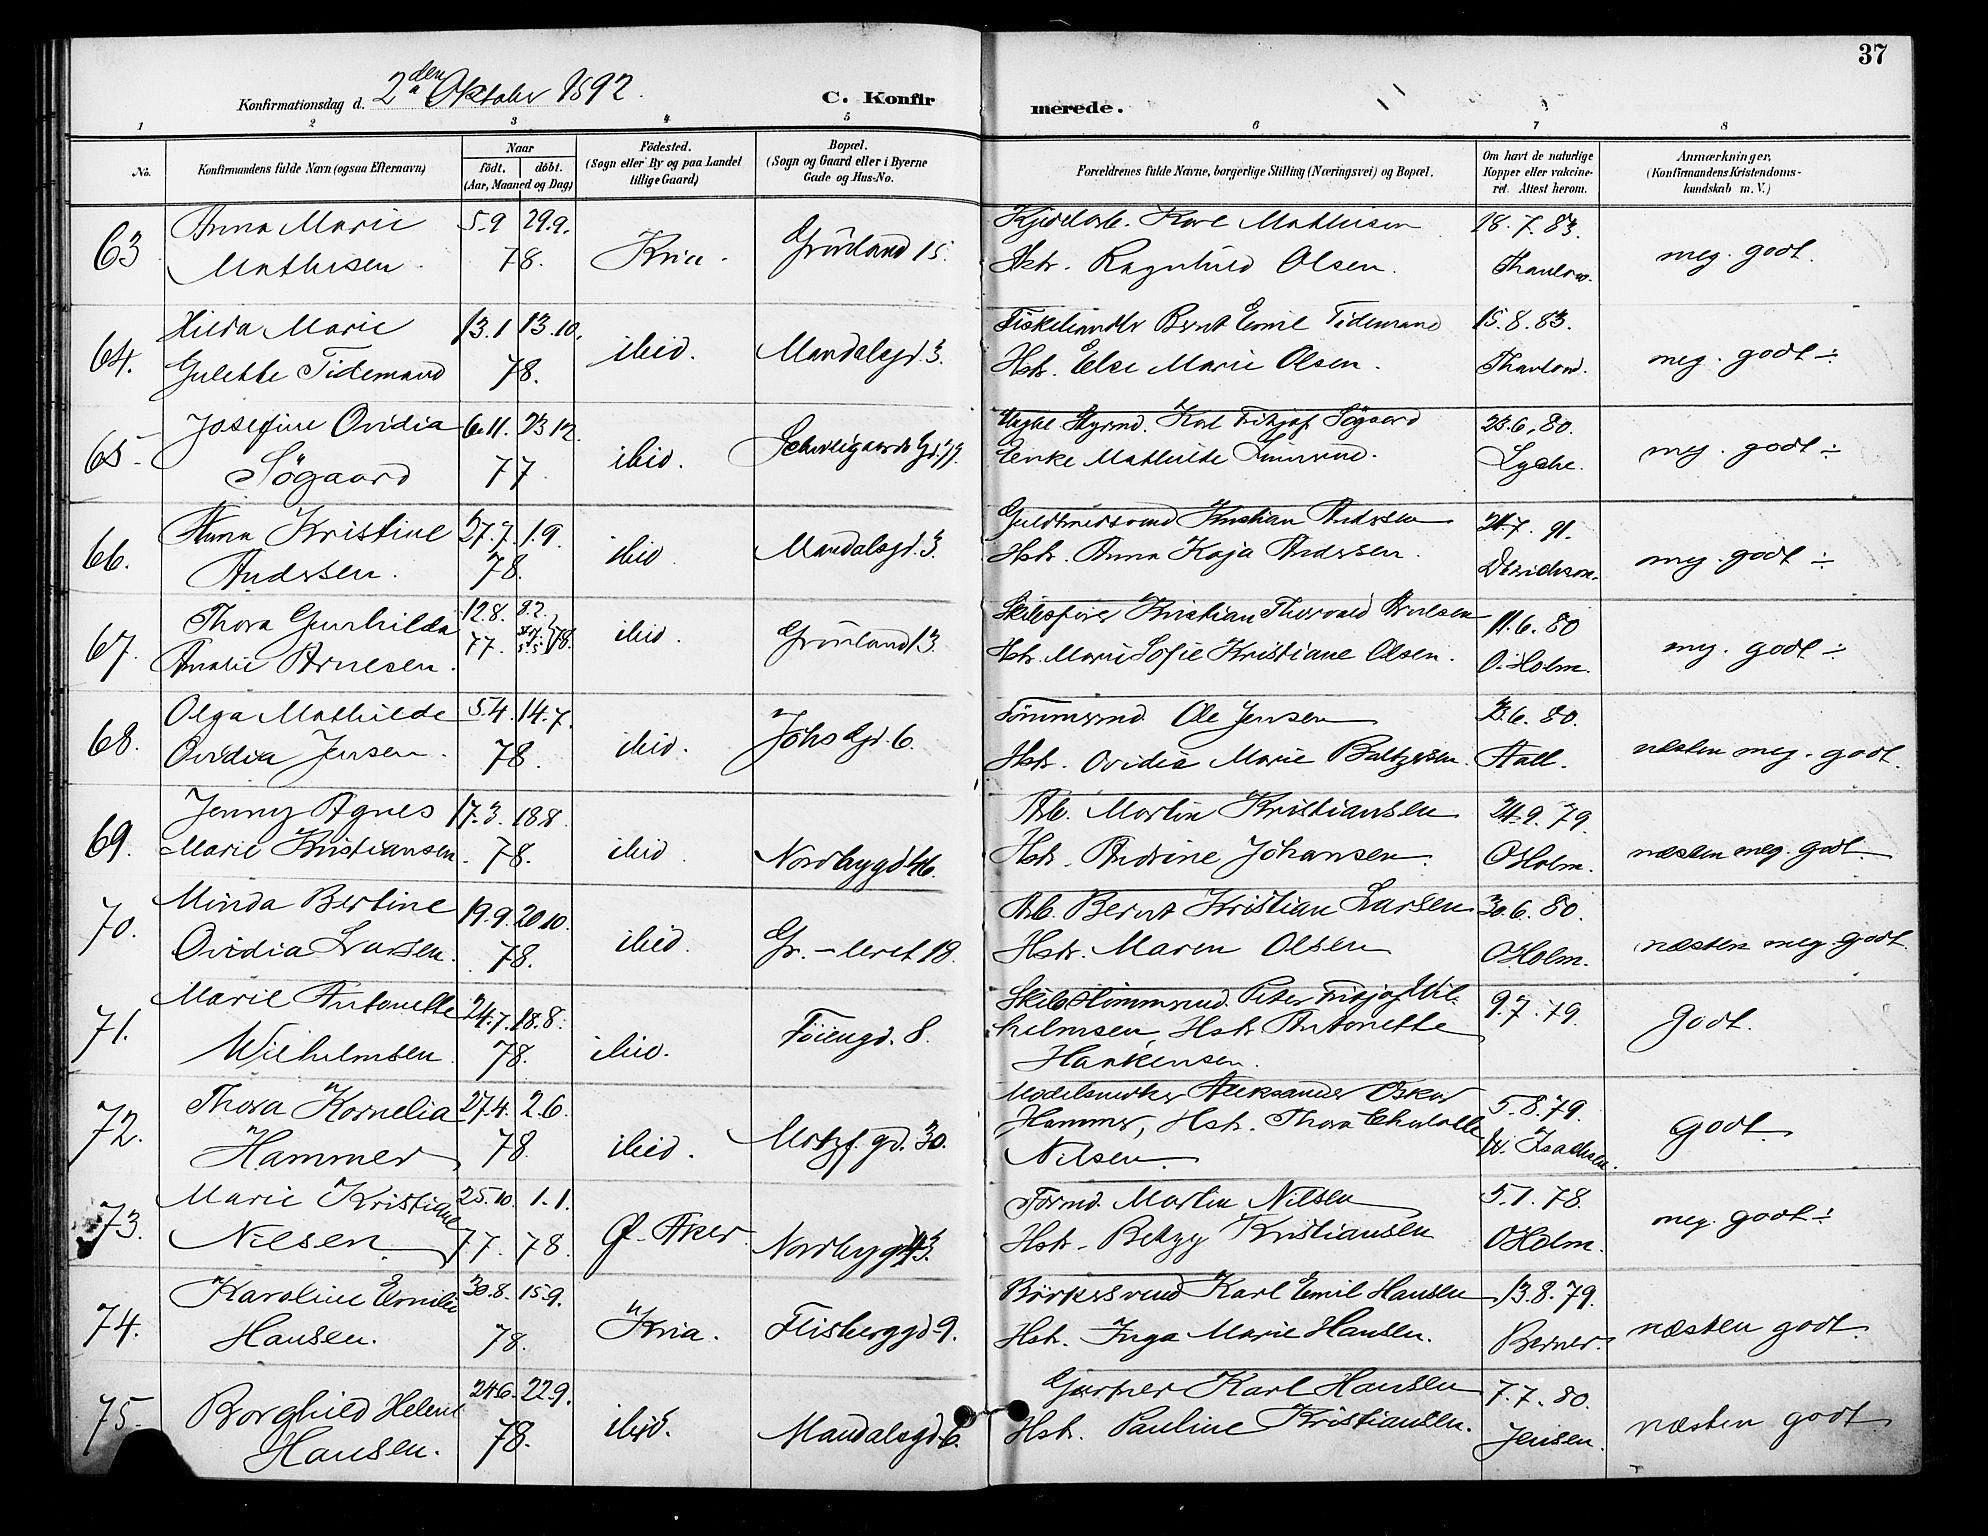 37
Konfirmationsdag d. 2den Oktober 1892. C. Konfirmerede.
1 2 3 4 5 6 7 8
No. Konfirmandens fulde Navn (ogsaa Efternavn) Naar født. døbt. (Aar, Maaned og Dag) Fødested. (Sogn eller By og paa Landet tillige Gaard) Bopæl. (Sogn og Gaard eller i Byerne Gade og Hus-No. Forældrenes fulde Navne, borgerlige Stilling (Næringsvei) og Bopæl. Om havt de naturlige Kopper eller vakcineret. Attest herom. Anmærkninger, (Konfirmandens Kristendomskundskab m. V.)
63 Anna Marie 5.9 29.9. Kria. Grönland 15. Karl Mathisen 18.7.83. meg. godt.
Mathisen. 78. Hstr. Ragnhild Olsen. Thaulow.
64. Hilda Marie 13.1 13.10. ibid. Mandalsgd. 3. Fiskehandler Bernt Emil Tidemand 15.8.83. meg. godt ÷
Gulette Tidemand 78. Hstr. Else Marie Olsen. Thaulow.
65. Josefine Ovidia 6.11. 23.12. ibid. Schweigaards Gd. 79. Karl Fritjof Søgaard 23.6.80. meg. godt ÷
Søgaard 77. Enke Mathilde Lyche.
66. Anna Kristine 27.7. 1.9. ibid. Mandalsgd. 3. Guldsmedsvend Kristian Andersen 21.7. 91. meg. godt ÷
Andersen. 78. Hstr. Anna Kaja Andersen.
67. Thora Gunhilda 12.8. 8.2. ibid. Grönland 13. Skibsfører Kristian Thorvald Arnesen 11.6.80 meg. godt ÷
Amalie Arnesen. 77. 78. Hstr. Marie Sofie Kristiane Olsen. O. Holm.
68. Olga Mathilde 5.4. 14.7. ibid. Johs Gd. 6. Tømmermd. Ole Jensen 23.6.80. næsten meg. godt.
Ovidia Jensen. 78. Hstr. Ovidia Marie Baltzersen. Hall.
69. Jenny Agnes 17.3. 18.8. ibid. Nordbygd. 46. Arb. Martin Kristiansen 24.9.79. næsten meg. godt.
Marie Kristiansen. 78. Hstr. Andrine Johansen. O Holm.
70. Minda Bertine 19.9. 20.10. ibid. Gr.-leret 18. Arb. Bernt Kristian Larsen 30.6.80. næsten meg. godt.
Ovidia Larsen. 78. Hstr. Maren Olsen O Holm.
71. Marie Antonette 24.7. 18.8. ibid. Föiengd. 8. Skibstømmermd. Peter Fritjof Wil- 9.7.79. Godt.
Wilhelmsen. 78. helmsen, Hstr. Antonette
Hankensen.
72. Thora Kornelia 27.4. 2.6. ibid. Motzf. gd. 30. Modelsnedker Aleksander Oskar 5.8.79. Godt.
Hammer 78. Hammer, Hstr. Thora Charlotte W. Isachsen.
Nilsen.
73. Marie Kristiane 25.10 1.1. Ø. Aker Nordbygd. 43. Formd. Martin Nilsen 5.1.78. meg. godt ÷
Nilsen. 77. 78. Hstr. Betzy Kristiansen O Holm.
74. Karoline Emilie 30.8. 15.9. Kria. Flisberggd. 9. Bødkersvend Karl Emil Hansen 13.8.79. næsten godt.
Hansen. 78. Hstr. Inga Marie Hansen. Berner.
75. Borghild Helene 24.6. 22.9. ibid. Mandalsgd. 6. Gartner Karl Hansen 7.7.80. næsten godt
Hansen. 78. Hstr. Pauline Kristiansen. Jensen.